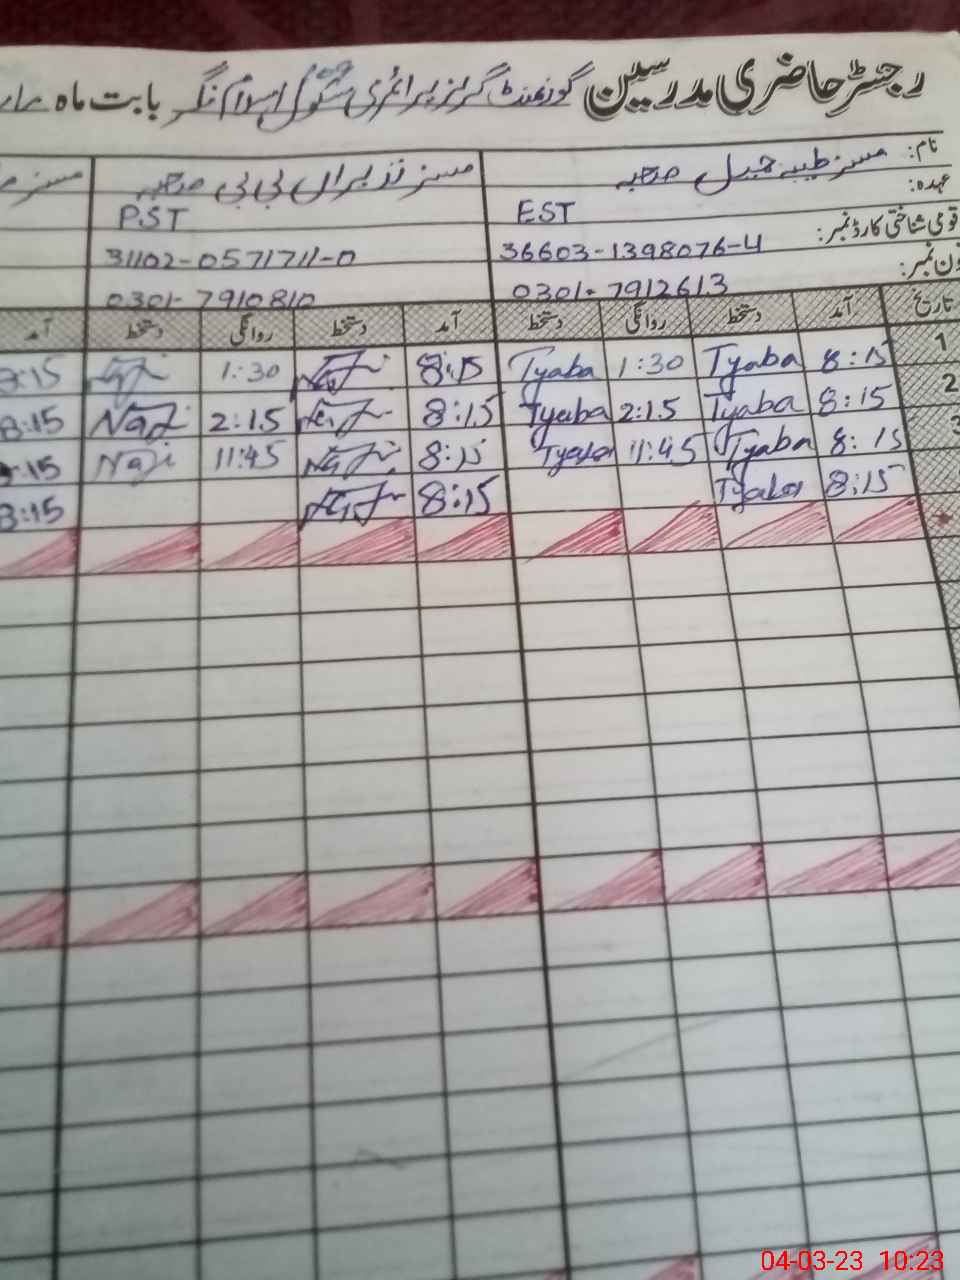 رجسٹر حاضری مدرسین گورنمنٹ گرلز پرائمری سکول اسلام نگر بابت ماہ
نام: مسز طیبہ جمیل صاحبہ مسز نذیراں بی بی صاحبہ مسز
عہدہ: EST PST
قومی شناختی کارڈ نمبر: 36603-1398076-4 31102-0571711-0
ون نمبر: 0301-7912613 0301-7910810
تاریخ آمد دستخط روانگی دستخط آمد دستخط روانگی دستخط آمد
1 8:15 Tyaba 1:30 Tyaba 8:15 1:30 8:15
2 8:15 Tyaba 2:15 Tyaba 8:15 2:15 Naz 8:15
3 8:15 Tyaba 11:45 Tyaba 8:15 11:45 Nazi :15
8:15 Tyaba 8:15 8:15
04-03-23 10:23